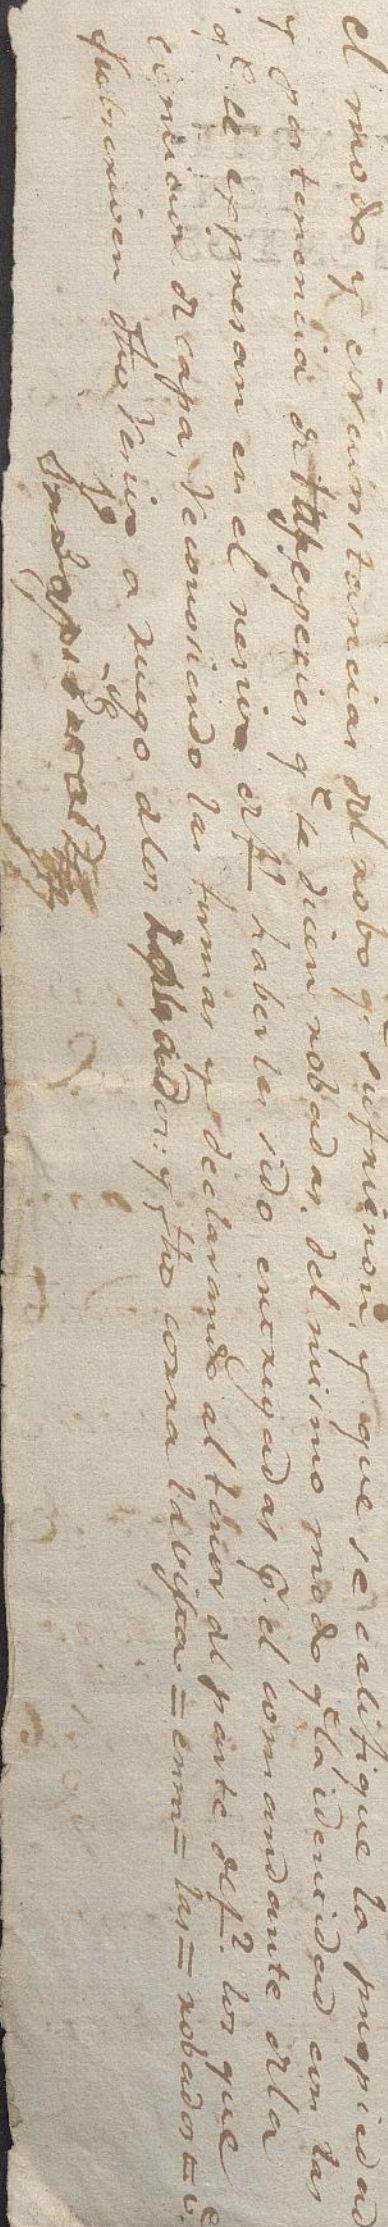 el modo y circunstancias del robo q.e sufrieron, y que se califique la propiedad
y pertenencia de las especies q.e se dicen robadas, del mismo modo q.e la identidad con las
q.e se expresan en el recivo de f.1 haberles sido entregadas p.r el comandante de la
comicion de capa, reconosiendo las firmas y declarando al tenor del parte de f.2 los que
subscriven dho recivo a ruego de los robados: y fho corra la vista = enm = las = robados = v.e